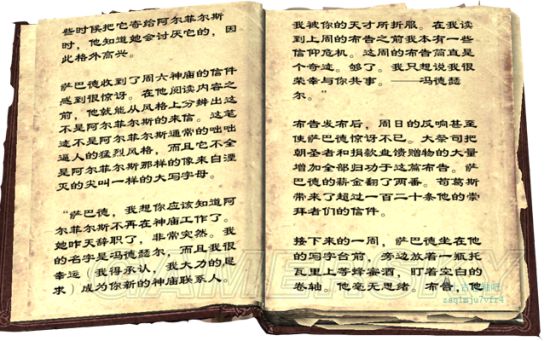 些时候把它寄给阿尔菲尔斯
时，他知道她会讨厌它的，因
此格外高兴。
萨巴德收到了周六神庙的信件
感到很惊讶。在他阅读内容之
前，他就能从风格上分辨出这
不是阿尔菲尔斯的来信。这笔
迹不是阿尔菲尔斯通常的咄咄
逼人的猛烈风格，而且它不全
是阿尔菲尔斯那样的像来自湮
灭的尖叫一样的大写字母。
“萨巴德，我想你应该知道阿
尔菲尔斯不再在神庙工作了。
她昨天辞职了，非常突然。我
的名字是冯德瑟尔，而且我很
幸运（我得承认，我大力的恳
求）成为你新的神庙联系人。
我被你的天才所折服。在我读
到上周的布告之前我本有一些
信仰危机。这周的布告简直是
个奇迹。够了。我只想说我很
荣幸与你共事。——冯德瑟
尔。”
布告发布后，周日的反响甚至
使萨巴德惊讶不已。大祭司把
朝圣者和捐款血馈赠物的大量
增加全部归功于这篇布告。萨
巴德的薪金翻了两番。苟葛斯
带来了超过一百二十条他的崇
拜者们的信件。
接下来的一周，萨巴德坐在他
的写字台前，旁边放着一瓶托
瓦里上等蜂蜜酒，盯着空白的
卷轴。他毫无思绪。布告，他
GAMERSKY
zaq1mju7vfr4